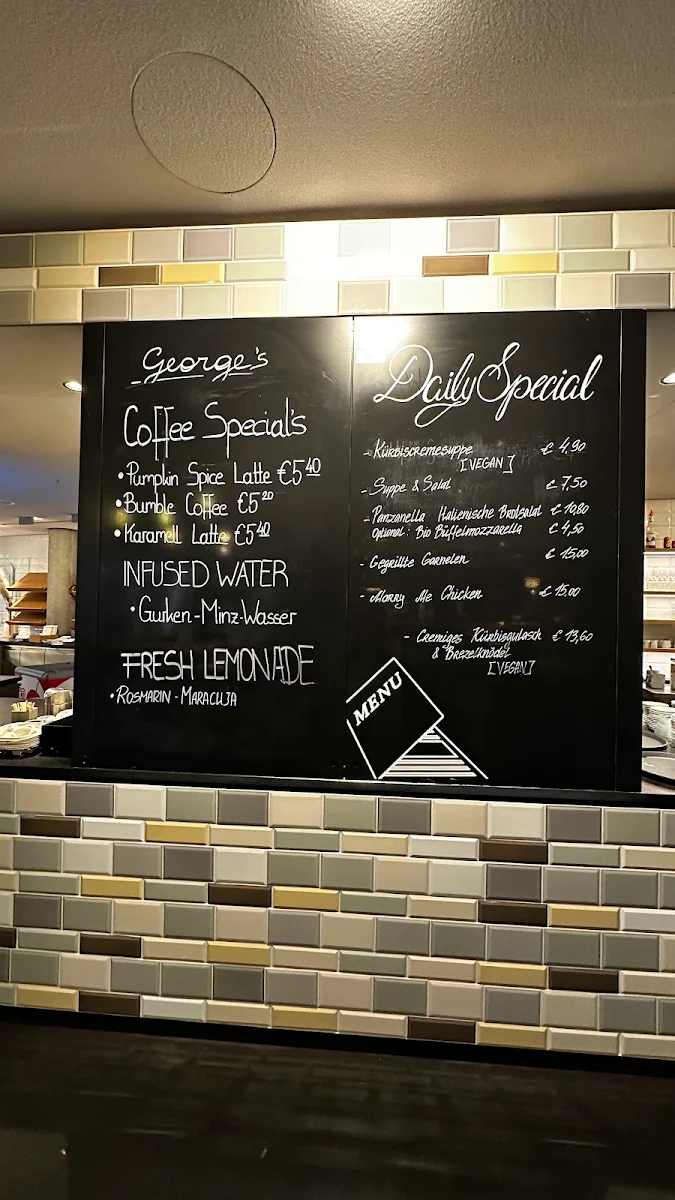 George's
Coffee Special's
• Pumpkin Spice Latte €5⁴⁰
• Bumble Coffee €5²⁰
• Karamell Latte €5⁴⁰
INFUSED WATER
• Gurken-Minz-Wasser
FRESH LEMONADE
• ROSMARIN - MARACUJA
Daily Special
- Kürbiscremesuppe € 4,90
[VEGAN]
- Suppe & Salat € 7,50
- Panzanella Italienische Brotsalat € 10,80
optional: Bio Büffelmozzarella € 4,50
- Gegrillte Garnelen € 15,00
- Marry Me Chicken € 15,00
- Cremiges Kürbisgulasch € 13,60
& Brezelknödel
[VEGAN]
MENU